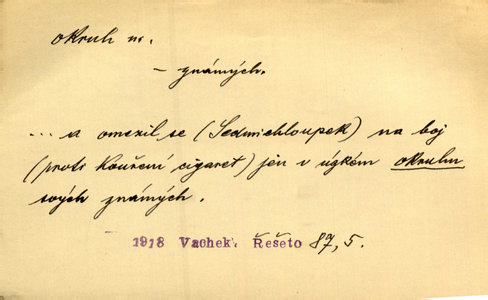 okruh m.
– známých.
... a omezil se (Sedmichloupek) na boj
(proti kouření cigaret) jen v úzkém okruhu
svých známých.
1918 Vachek. Řešeto 87, 5.